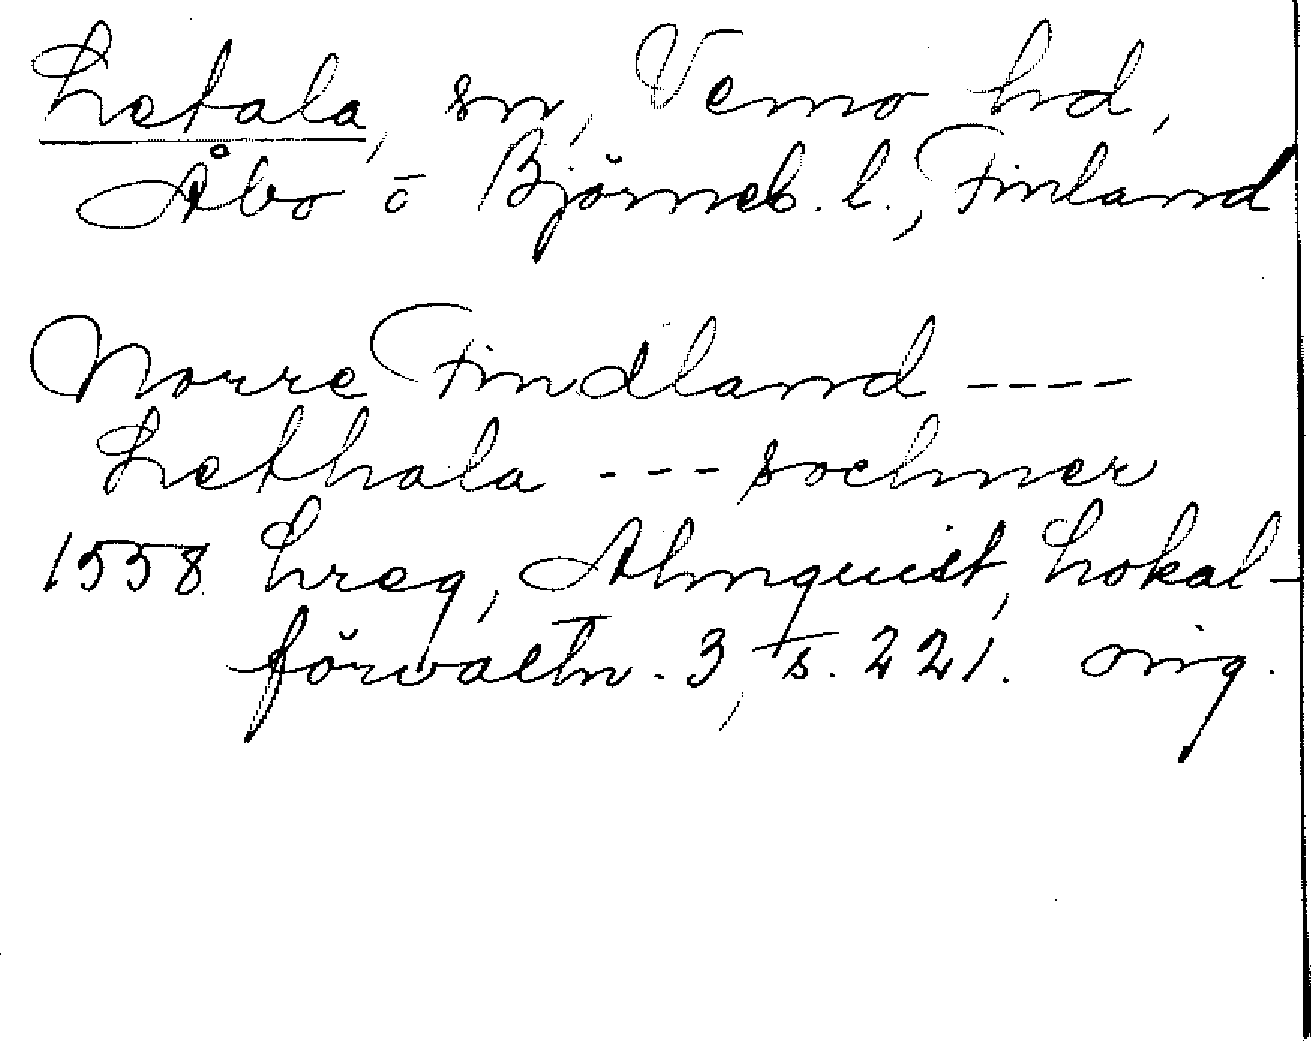 Letala, sn, Vemo hd,
Åbo o Björneb. l., Finland
Norre Findland ----
Lethala --- sochner
1558 Lreg, Almquist, Lokal-
förvaltn. 3, s. 221. orig.